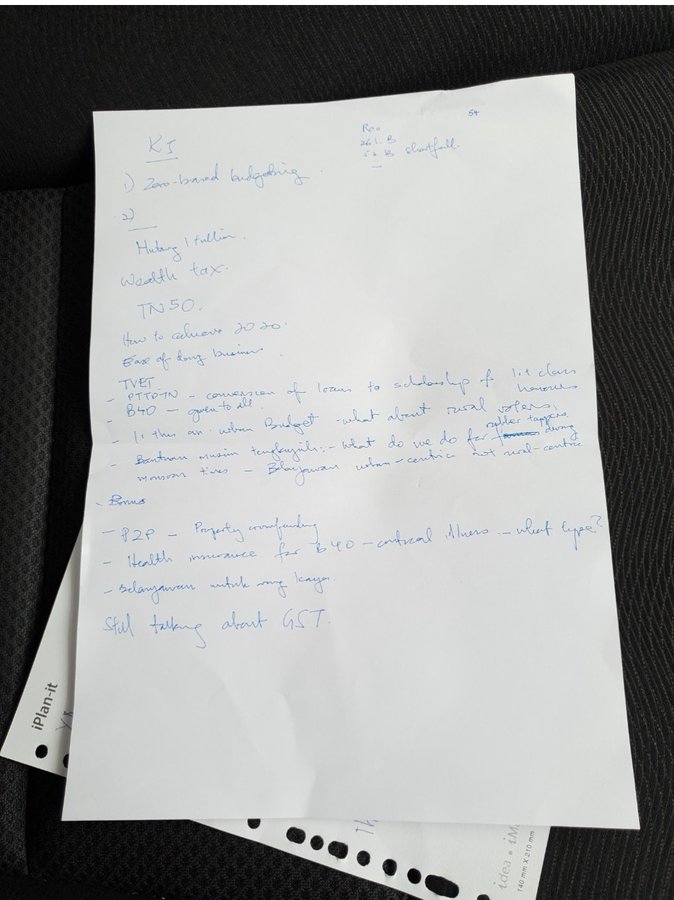 KJ
54
Rev
261. B
53 B shortfall.
1) Zero-based budgeting
2)
Hutang 1 trillion.
Wealth tax.
TN50.
How to achieve 2020.
Ease of doing business.
TVET
- PTTPTN - conversion of loans to scholarship of 1st class honours
- B40 - given to all.
- Is this an urban Budget - what about rural voters.
- Bantuan musim tengkujuh - what do we do for rubber tappers during
monsoon times - Belanjawan urban-centric not rural-centric
- Bonus
- P2P - Property crowdfunding
- Health insurance for B40 - critical illness - what type?
- Belanjawan untuk orang kaya.
Still talking about GST.
iPlan-it
idea
140 mm X 210 mm